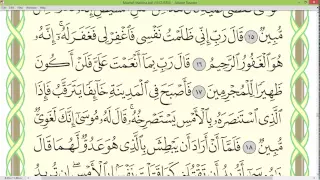 مُّبِينٌ ١٥ قَالَ رَبِّ إِنِّى ظَلَمْتُ نَفْسِى فَٱغْفِرْ لِى فَغَفَرَ لَهُۥٓ إِنَّهُۥ
هُوَ ٱلْغَفُورُ ٱلرَّحِيمُ ١٦ قَالَ رَبِّ بِمَآ أَنْعَمْتَ عَلَىَّ فَلَنْ أَكُونَ
ظَهِيرًا لِّلْمُجْرِمِينَ ١٧ فَأَصْبَحَ فِى ٱلْمَدِينَةِ خَآئِفًا يَتَرَقَّبُ فَإِذَا
ٱلَّذِى ٱسْتَنصَرَهُۥ بِٱلْأَمْسِ يَسْتَصْرِخُهُۥ ۚ قَالَ لَهُۥ مُوسَىٰٓ إِنَّكَ لَغَوِىٌّ
مُّبِينٌ ١٨ فَلَمَّآ أَنْ أَرَادَ أَن يَبْطِشَ بِٱلَّذِى هُوَ عَدُوٌّ لَّهُمَا قَالَ